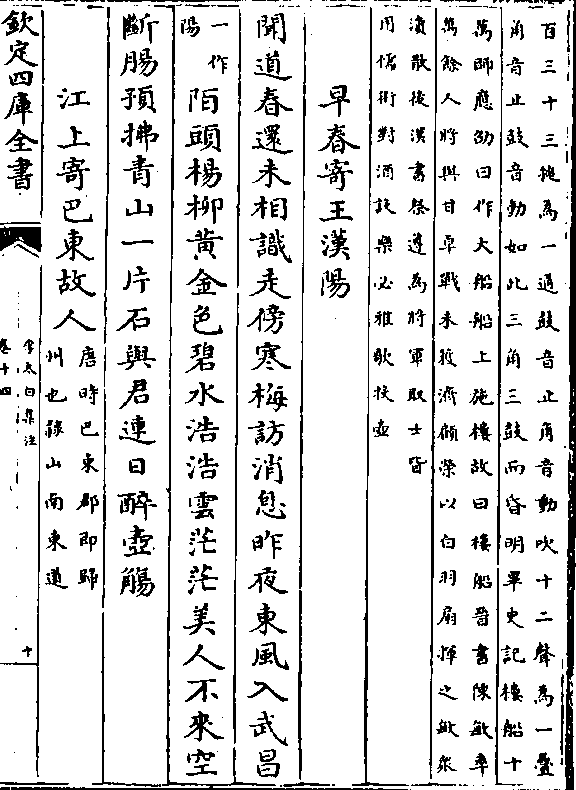 百三十三搥為一通鼓音止角音動吹十二聲為一疊
角音止鼓音動如此三角三鼓而昏明畢史記樓船十
萬師應劭曰作大船船上施樓故曰樓船晉書陳敏率
萬餘人將與甘卓戰未獲濟顧榮以白羽扇揮之敏衆
潰散後漢書祭遵為將軍取士皆
用儒術對酒設樂必雅歌投壺
早春寄王漢陽
聞道春還未相識走傍寒梅訪消息昨夜東風入武昌
一作
陽
陌頭楊柳黃金色碧水浩浩雲茫茫美人不來空
斷腸預拂青山一片石與君連日醉壺觴
江上寄巴東故人
唐時巴東郡即歸
州也隸山南東道
欽定四庫全書
李太白集注
卷十四
十